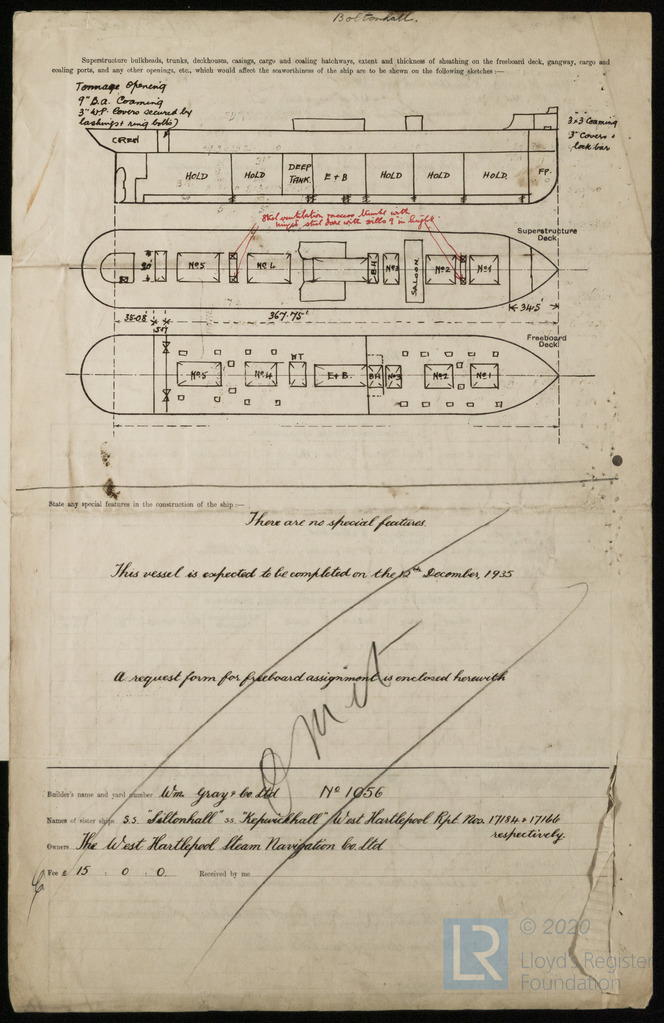 Boltonhall.
Superstructure bulkheads, trunks, deckhouses, casings, cargo and coaling hatchways, extent and thickness of sheathing on the freeboard deck, gangway, cargo and
coaling ports, and any other openings, etc., which would affect the seaworthiness of the ship are to be shown on the following sketches :—
Tonnage Opening
9" B.A. Coaming
3" W.P. Covers secured by
lashings & ring bolts)
3 x 3 Coaming
3" Covers &
lock bar
CREW
HOLD
HOLD
DEEP
TANK.
E + B
HOLD
HOLD
HOLD.
F.P.
Steel ventilation access trunks with
hinged steel doors with sills 9 in height.
Superstructure
Deck.
20'
No 5
No 4
B.H
No 3
SALOON
No 2
No 1
35·08'
5·17
367·75'
34·5'
Freeboard
Deck
No 5
No 4
WT
E + B.
BH
No 3
No 2
No 1
State any special features in the construction of the ship :—
There are no special features.
This vessel is expected to be completed on the 12th December, 1935
A request form for freeboard assignment is enclosed herewith
Omit
Builder's name and yard number Wm. Gray & Co. Ltd No 1056
Names of sister ships S.S. "Siltonhall" S.S. "Kepwickhall" West Hartlepool Rpt. Nos. 17184 & 17166
respectively.
Owners The West Hartlepool Steam Navigation Co. Ltd
Fee £ 15 : 0 : 0. Received by me
LR
© 2020
Lloyd's Register
Foundation